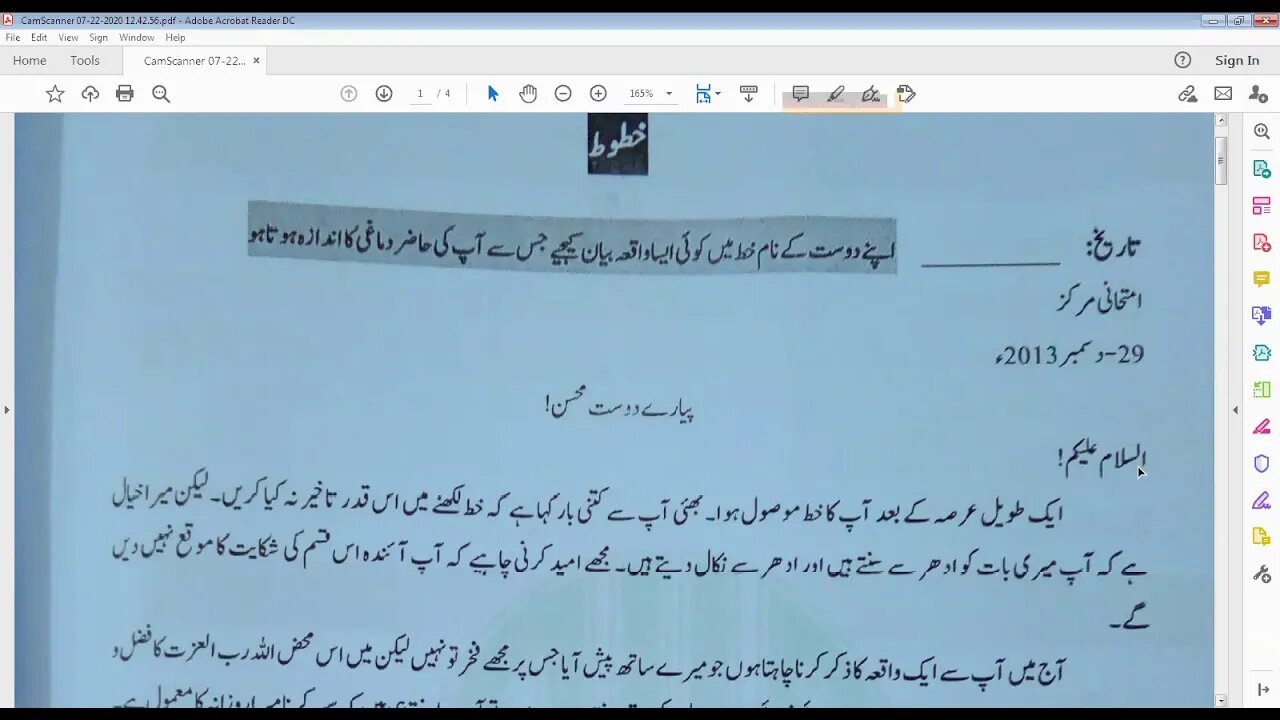 CamScanner 07-22-2020 12.42.56.pdf - Adobe Acrobat Reader DC
File Edit View Sign Window Help
Home Tools CamScanner 07-22... ×
Sign In
1 / 4 165%
خطوط
تاریخ: ____________
اپنے دوست کے نام خط میں کوئی ایسا واقعہ بیان کیجیے جس سے آپ کی حاضر دماغی کا اندازہ ہوتا ہو
امتحانی مرکز
29-دسمبر2013ء
پیارے دوست محسن!
السلام علیکم!
ایک طویل عرصہ کے بعد آپ کا خط موصول ہوا۔ بھئی آپ سے کتنی بار کہا ہے کہ خط لکھنے میں اس قدر تاخیر نہ کیا کریں۔ لیکن میرا خیال
ہے کہ آپ میری بات کو ادھر سے سنتے ہیں اور ادھر سے نکال دیتے ہیں۔ مجھے امید کرنی چاہیے کہ آپ آئندہ اس قسم کی شکایت کا موقع نہیں دیں
گے۔
آج میں آپ سے ایک واقعہ کا ذکر کرنا چاہتا ہوں جو میرے ساتھ پیش آیا جس پر مجھے فخر تو نہیں لیکن میں اس محض اللہ رب العزت کا فضل و